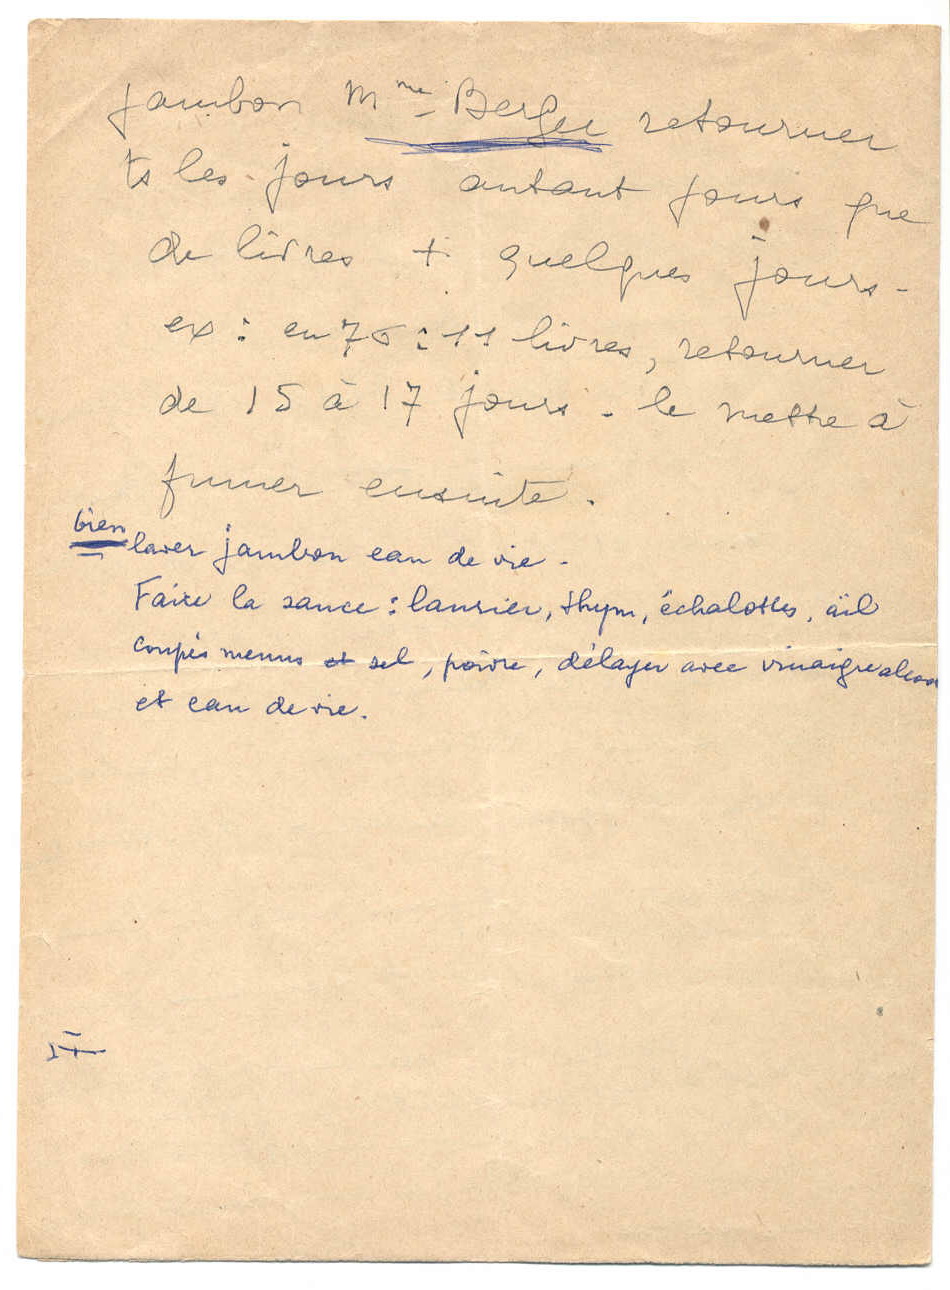 jambon Mme Berger retourner
ts les jours autant jours que
de livres + quelques jours -
ex : en 76 : 11 livres, retourner
de 15 à 17 jours - le mettre à
fumer ensuite.
bien
laver jambon eau de vie -
Faire la sauce : laurier, thym, échalottes, aïl
coupés menus et sel, poivre, délayer avec vinaigre alcool
et eau de vie.